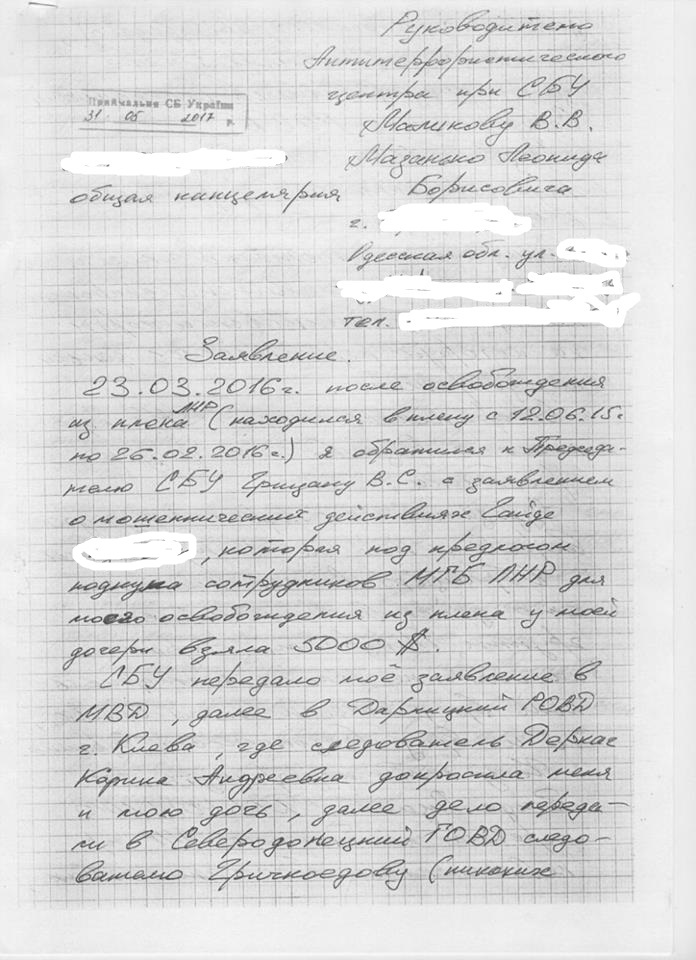 Руководителю
Антитеррористического
центра при СБУ
Маликову В.В.
Мазанько Леонида
Борисовича
Приймальня СБ України
31 05 2017 р.
общая канцелярия
г.
Одесская обл. ул.
тел.
Заявление.
23.03.2016г. после освобождения
из плена ЛНР (находился в плену с 12.06.15г
по 26.02.2016г.) я обратился к Председа-
телю СБУ Грицаку В.С. с заявлением
о мошеннических действиях Гайде
, которая под предлогом
подкупа сотрудников МГБ ЛНР для
моего освобождения из плена у моей
дочери взяла 5000 $.
СБУ передало моё заявление в
МВД, далее в Дарницкий РОВД
г. Киева, где следователь Деркач
Карина Андреевна допросила меня
и мою дочь, далее дело переда-
ли в Северодонецкий ГОВД следо-
вателю Гричноедову (никаких